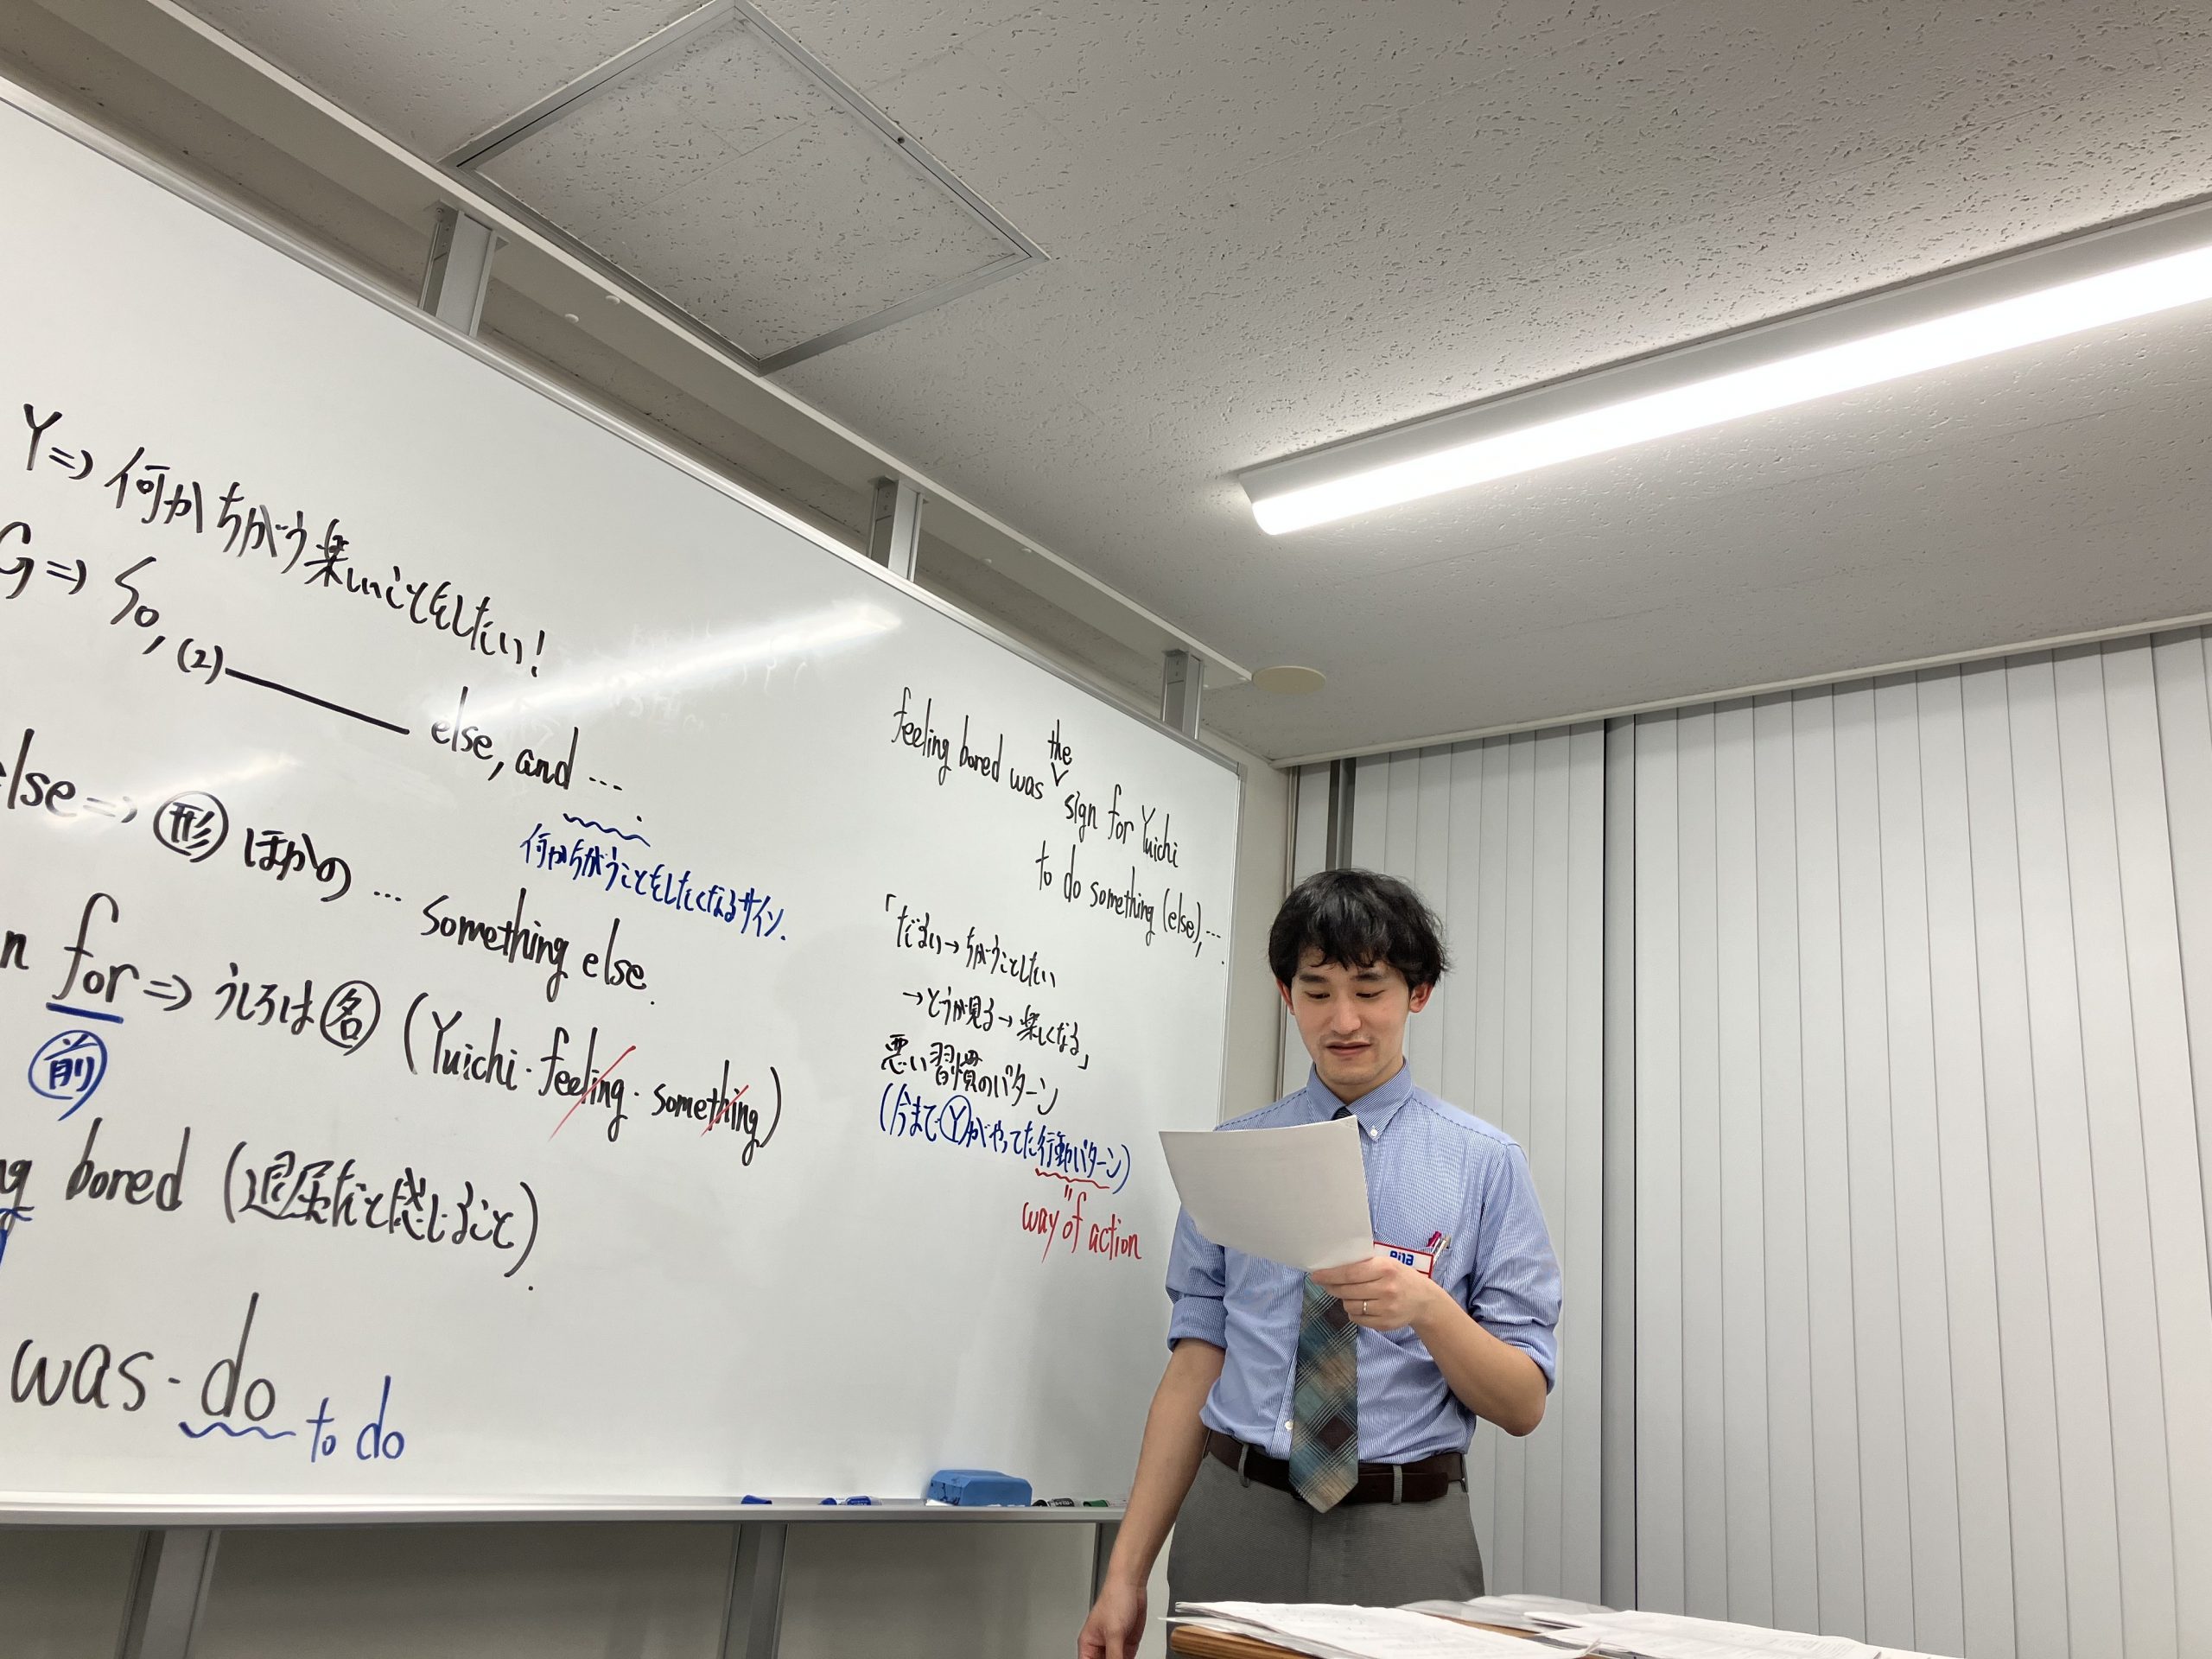 Y⇒何かちがう楽しいことをしたい!
G⇒So, (2)______ else, and ….
何かちがうことをしたくなるサイン.
else⇒形 ほかの … something else.
n for⇒うしろは名 (Yuichi・feeling・something)
前
ng bored (退屈だと感じること).
was・do to do
feeling bored was the sign for Yuichi
to do something (else), ….
「だるい→ちがうことしたい
→どうが見る→楽しくなる」
悪い習慣のパターン
(今までⓎがやってた行動パターン)
=
way of action